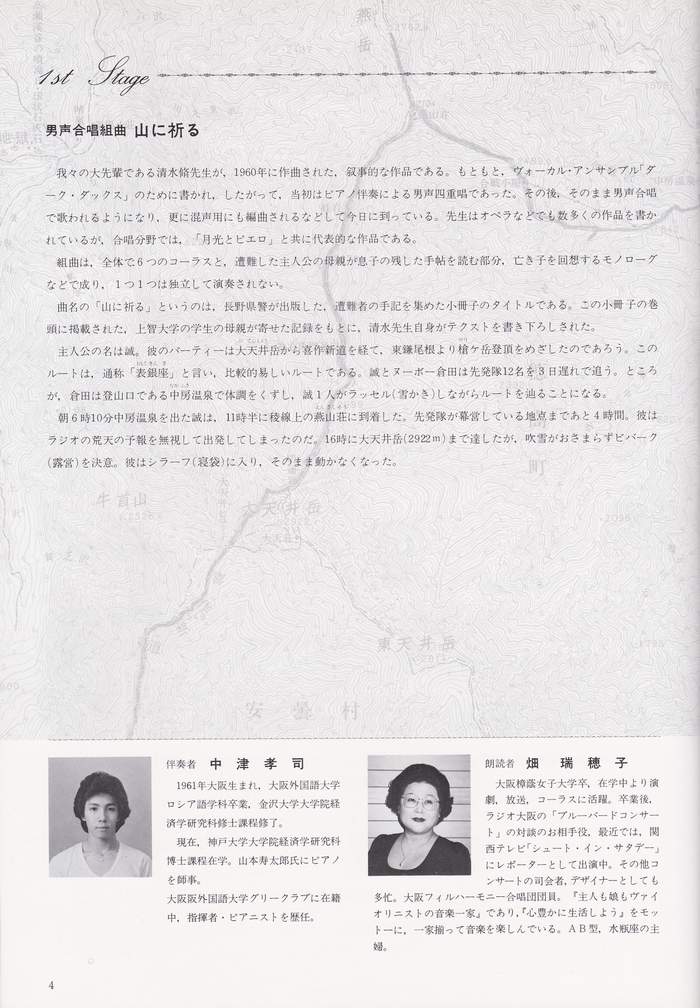 1st Stage
男声合唱組曲 山に祈る
我々の大先輩である清水脩先生が，1960年に作曲された，叙事的な作品である。もともと，ヴォーカル・アンサンブル「ダ
ーク・ダックス」のために書かれ，したがって，当初はピアノ伴奏による男声四重唱であった。その後，そのまま男声合唱
で歌われるようになり，更に混声用にも編曲されるなどして今日に到っている。先生はオペラなどでも数多くの作品を書か
れているが，合唱分野では，「月光とピエロ」と共に代表的な作品である。
組曲は，全体で6つのコーラスと，遭難した主人公の母親が息子の残した手帖を読む部分，亡き子を回想するモノローグ
などで成り，1つ1つは独立して演奏されない。
曲名の「山に祈る」というのは，長野県警が出版した，遭難者の手記を集めた小冊子のタイトルである。この小冊子の巻
頭に掲載された，上智大学の学生の母親が寄せた記録をもとに，清水先生自身がテクストを書き下ろしされた。
主人公の名は誠。彼のパーティーは大天井岳から喜作新道を経て，東鎌尾根より槍ケ岳登頂をめざしたのであろう。この
ルートは，通称「表銀座」と言い，比較的易しいルートである。誠とヌーボー倉田は先発隊12名を3日遅れで追う。ところ
が，倉田は登山口である中房温泉で体調をくずし，誠1人がラッセル(雪かき)しながらルートを辿ることになる。
朝6時10分中房温泉を出た誠は，11時半に稜線上の燕山荘に到着した。先発隊が幕営している地点まであと4時間。彼は
ラジオの荒天の予報を無視して出発してしまったのだ。16時に大天井岳(2922m)まで達したが，吹雪がおさまらずビバーク
(露営)を決意。彼はシラーフ(寝袋)に入り，そのまま動かなくなった。
燕岳
牛首山
大天井岳
東天井岳
安曇村
伴奏者 中津孝司
1961年大阪生まれ，大阪外国語大学
ロシア語学科卒業，金沢大学大学院経
済学研究科修士課程修了。
現在，神戸大学大学院経済学研究科
博士課程在学。山本寿太郎氏にピアノ
を師事。
大阪阪外国語大学グリークラブに在籍
中，指揮者・ピアニストを歴任。
朗読者 畑瑞穂子
大阪樟蔭女子大学卒，在学中より演
劇，放送，コーラスに活躍。卒業後，
ラジオ大阪の「ブルーバードコンサー
ト」の対談のお相手役，最近では，関
西テレビ「シュート・イン・サタデー」
にレポーターとして出演中。その他コ
ンサートの司会者，デザイナーとしても
多忙。大阪フィルハーモニー合唱団団員。『主人も娘もヴァイ
オリニストの音楽一家』であり，『心豊かに生活しよう』をモッ
トーに，一家揃って音楽を楽しんでいる。AB型，水瓶座の主
婦。
4